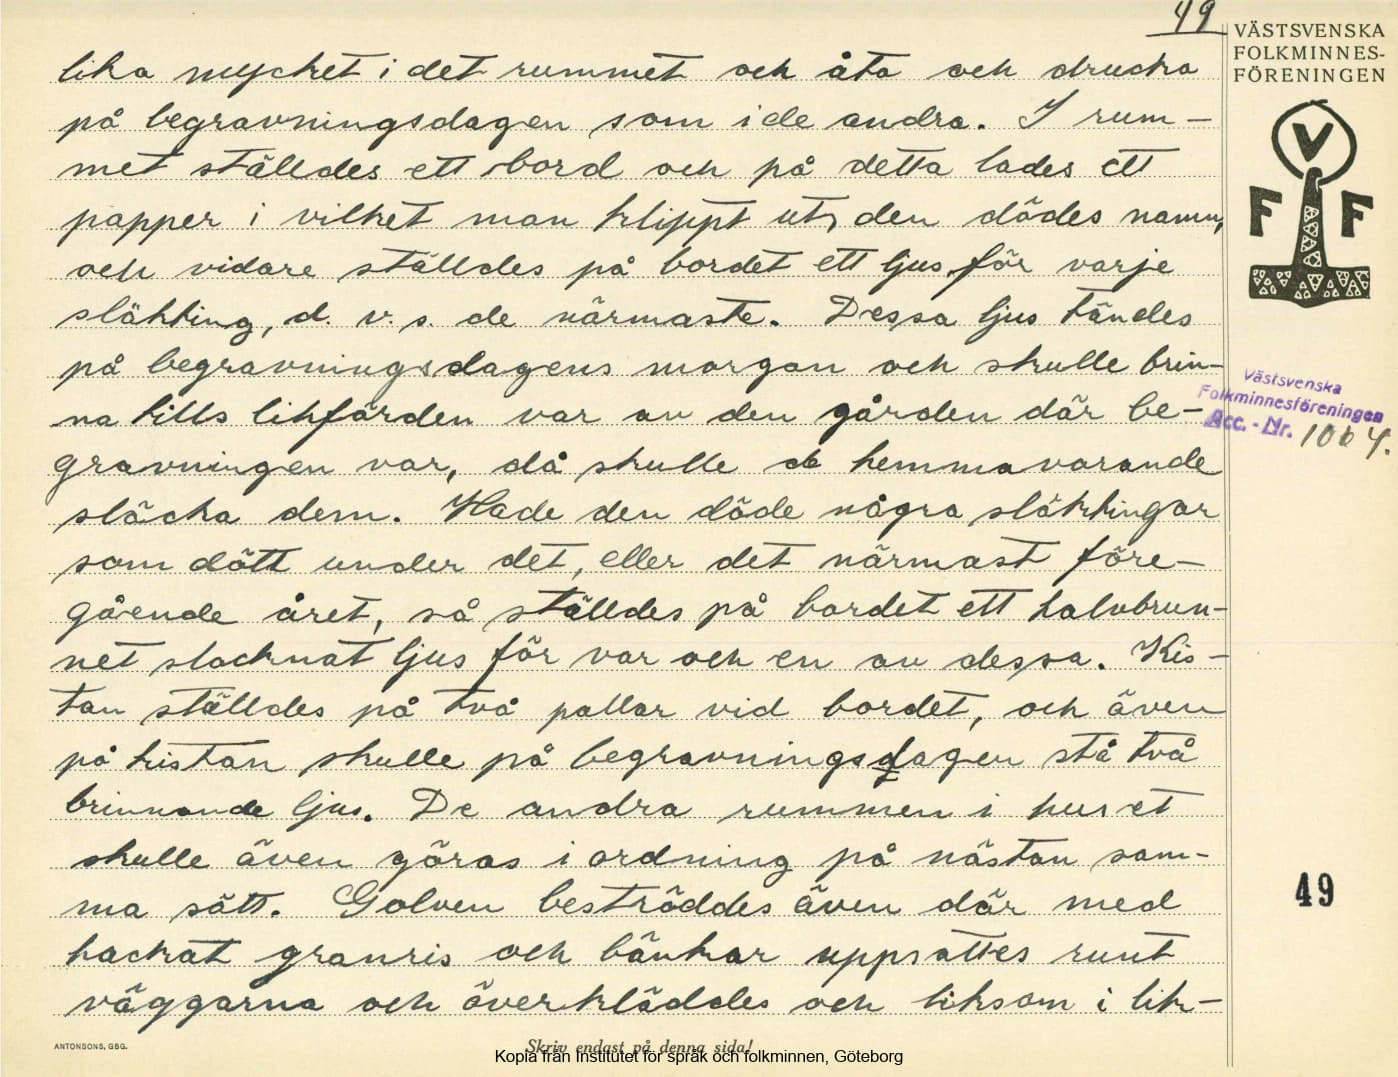 49
VÄSTSVENSKA
FOLKMINNES-
FÖRENINGEN
V
F F
lika mycket i det rummet och äta och drucka
på begravningsdagen som i de andra. I rum-
met ställdes ett bord och på detta lades ett
papper i vilket man klippt ut, den dödes namn,
och vidare ställdes på bordet ett ljus för varje
släkting, d. v. s. de närmaste. Dessa ljus tändes
på begravningsdagens morgon och skulle brin-
na tills likfärden var av den gården där be-
gravningen var, då skulle de hemmavarande
släcka dem. Hade den döde några släktingar
som dött under det, eller det närmast före-
gående året, så ställdes på bordet ett halvbrun-
net slocknat ljus för var och en av dessa. Kis-
tan ställdes på två pallar vid bordet, och även
på kistan skulle på begravningsdagen stå två
brinnande ljus. De andra rummen i huset
skulle även göras i ordning på nästan sam-
ma sätt. Golven beströddes även där med
hackat granris och bänkar uppsattes runt
väggarna och överkläddes och liksom i lik-
Västsvenska
Folkminnesföreningen
Acc. - Nr. 1004.
49
ANTONSONS, GBG.
Skriv endast på denna sida!
Kopia från Institutet för språk och folkminnen, Göteborg